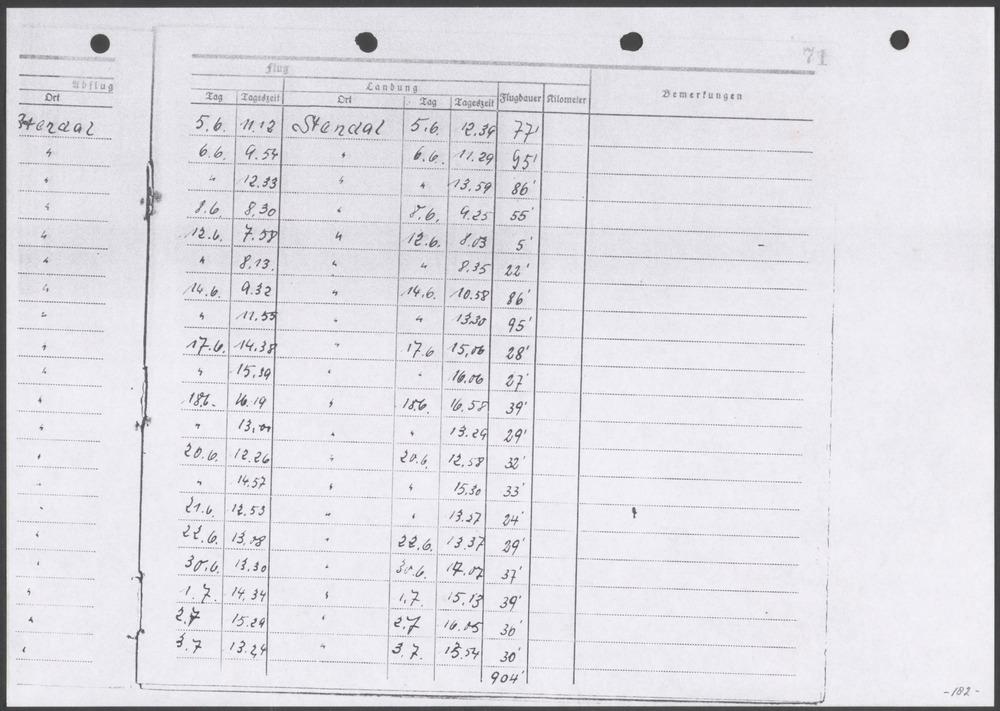 71
Flug
Abflug Landung
Ort Tag Tageszeit Ort Tag Tageszeit Flugdauer Kilometer Bemerkungen
Stendal 5.6. 11.12 Stendal 5.6. 12.39 77'
" 6.6. 9.54 " 6.6. 11.29 95'
" " 12.33 " " 13.59 86'
" 8.6. 8.30 " 8.6. 9.25 55'
" 12.6. 7.58 " 12.6. 8.03 5'
" " 8.13. " " 8.35 22'
" 14.6. 9.32 " 14.6. 10.58 86'
" " 11.55 " " 13.30 95'
" 17.6. 14.38 " 17.6 15.06 28'
" " 15.39 " " 16.06 27'
" 18.6. 16.19 " 18.6. 16.58 39'
" " 13.00 " " 13.29 29'
" 20.6. 12.26 " 20.6. 12.58 32'
" " 14.57 " " 15.30 33'
" 21.6. 12.53 " " 13.27 24'
" 22.6. 13.08 " 22.6. 13.37 29'
" 30.6. 13.30 " 30.6. 37'
" 1.7. 14.34 " 1.7. 15.13 39'
" 2.7 15.29 " 2.7 16.05 36'
" 3.7 13.24 " 3.7. 13.54 30'
904'
-182-